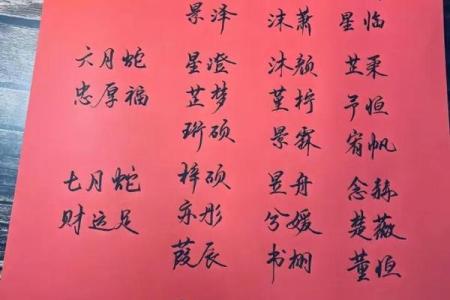 景泽 沐萧 星临
六月蛇 星澄 沐颜 芷柔
忠厚福 芷梦 堇柠 予恒
珩硕 景霖 宥帆
七月蛇 梓硕 昱舟 念赫
财运足 亦彤 兮媛 楚薇
葭辰 书栩 董恒